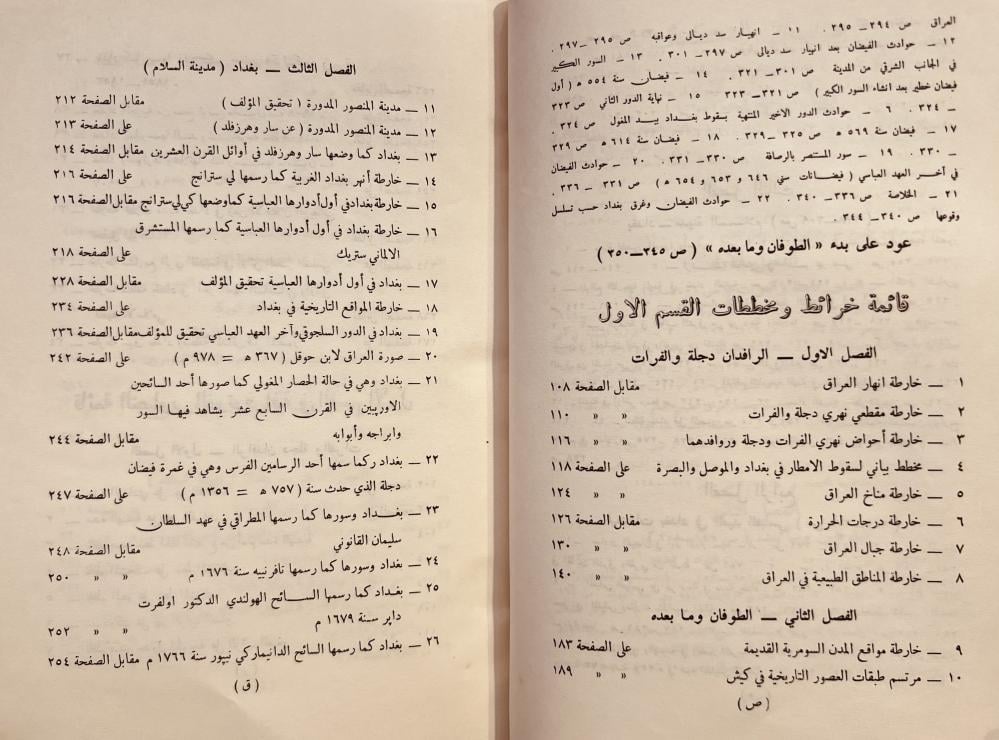 العراق ص ٢٩٤ــ ٢٩٥ . ١١ ــ انهيار سد ديالى وعواقبه ص ٢٩٥ ــ٢٩٧ .
١٢ ــ حوادث الفيضان بعد انهيار سد ديالى ص ٢٩٧ــ ٣٠١ . ١٣ ــ السور الكبير
في الجانب الشرقي من المدينة ص ٣٠١ــ ٣٢١ . ١٤ ــ فيضان سنة ٥٥٤ ه ( أول
فيضان خطير بعد انشاء السور الكبير ) ص ٣٢١ــ ٣٢٣ ١٥ ــ نهاية الدور الثاني ص ٣٢٣
ــ ٣٢٤ . ٦ ــ حوادث الدور الاخير المنتهية بسقوط بغداد بيد المغول ص ٣٢٤ .
١٧ ــ فيضان سنة ٥٦٩ ه ص ٣٢٥ ــ ٣٢٩ . ١٨ ــ فيضان سنة ٦١٤ ه ص ٣٢٩
ــ ٣٣٠ . ١٩ ــ سور المستنصر بالرصافة ص ٣٣٠ــ ٣٣١ . ٢٠ ــ حوادث الفيضان
في آخر العهد العباسي ( فيضانات سني ٦٤٦ و ٦٥٣ و ٦٥٤ ه ) ص ٣٣١ ــ ٣٣٦ .
٢١ ــ الخلاصة ص ٣٣٦ــ ٣٤٠ . ٢٢ ــ حوادث الفيضان وغرق بغداد حسب تسلسل
وقوعها ص ٣٤٠ــ ٣٤٤ .
عود على بدء « الطوفان وما بعده » ( ص ٣٤٥ــ٣٥٠ )
قائمة خرائط ومخططات القسم الاول
الفصل الاول ــ الرافدان دجلة والفرات
١ ــ خارطة انهار العراق مقابل الصفحة ١٠٨
٢ ــ خارطة مقطعي نهري دجلة والفرات » » ١١٠
٣ ــ خارطة أحواض نهري الفرات ودجلة وروافدهما » » ١١٦
٤ ــ مخطط بياني لسقوط الامطار في بغداد والموصل والبصرة على الصفحة ١١٨
٥ ــ خارطة مناخ العراق » » ١٢٤
٦ ــ خارطة درجات الحرارة مقابل الصفحة ١٢٦
٧ ــ خارطة جبال العراق » » ١٣٠
٨ ــ خارطة المناطق الطبيعية في العراق » » ١٤٠
الفصل الثاني ــ الطوفان وما بعده
٩ ــ خارطة مواقع المدن السومرية القديمة على الصفحة ١٨٣
١٠ ــ مرتسم طبقات العصور التاريخية في كيش » » ١٨٩
( ص )
الفصل الثالث ــ بغداد ( مدينة السلام )
١١ ــ مدينة المنصور المدورة ( تحقيق المؤلف ) مقابل الصفحة ٢١٢
١٢ ــ مدينة المنصور المدورة ( عن سار وهرزفلد ) على الصفحة ٢١٣
١٣ ــ بغداد كما وضعها سار وهرزفلد في أوائل القرن العشرين مقابل الصفحة ٢١٤
١٤ ــ خارطة أنهر بغداد الغربية كما رسمها لي سترانج على الصفحة ٢١٦
١٥ ــ خارطة بغداد في أول أدوارها العباسية كما وضعها كي لي سترانج مقابل الصفحة ٢١٦
١٦ ــ خارطة بغداد في أول أدوارها العباسية كما رسمها المستشرق
الالماني ستريك على الصفحة ٢١٨
١٧ ــ بغداد في أول أدوارها العباسية تحقيق المؤلف مقابل الصفحة ٢٢٨
١٨ ــ خارطة المواقع التاريخية في بغداد على الصفحة ٢٣٤
١٩ ــ بغداد في الدور السلجوقي وآخر العهد العباسي تحقيق للمؤلف مقابل الصفحة ٢٣٦
٢٠ ــ صورة العراق لابن حوقل ( ٣٦٧ ه = ٩٧٨ م ) على الصفحة ٢٤٢
٢١ ــ بغداد وهي في حالة الحصار المغولي كما صورها أحد السائحين
الاوربيين في القرن السابع عشر يشاهد فيها السور
وابراجه وأبوابه مقابل الصفحة ٢٤٤
٢٢ ــ بغداد ركما سمها أحد الرسامين الفرس وهي في غمرة فيضان
دجلة الذي حدث سنة ( ٧٥٧ ه = ١٣٥٦ م ) على الصفحة ٢٤٧
٢٣ ــ بغداد وسورها كما رسمها المطراقي في عهد السلطان
سليمان القانوني مقابل الصفحة ٢٤٨
٢٤ ــ بغداد وسورها كما رسمها تافرنييه سنة ١٦٧٦ م » » ٢٥٠
٢٥ ــ بغداد كما رسمها السائح الهولندي الدكتور اولفرت
دابر سنة ١٦٧٩ م » » ٢٥٢
٢٦ ــ بغداد كما رسمها السائح الدانيماركي نيبور سنة ١٧٦٦ م مقابل الصفحة ٢٥٤
( ق )